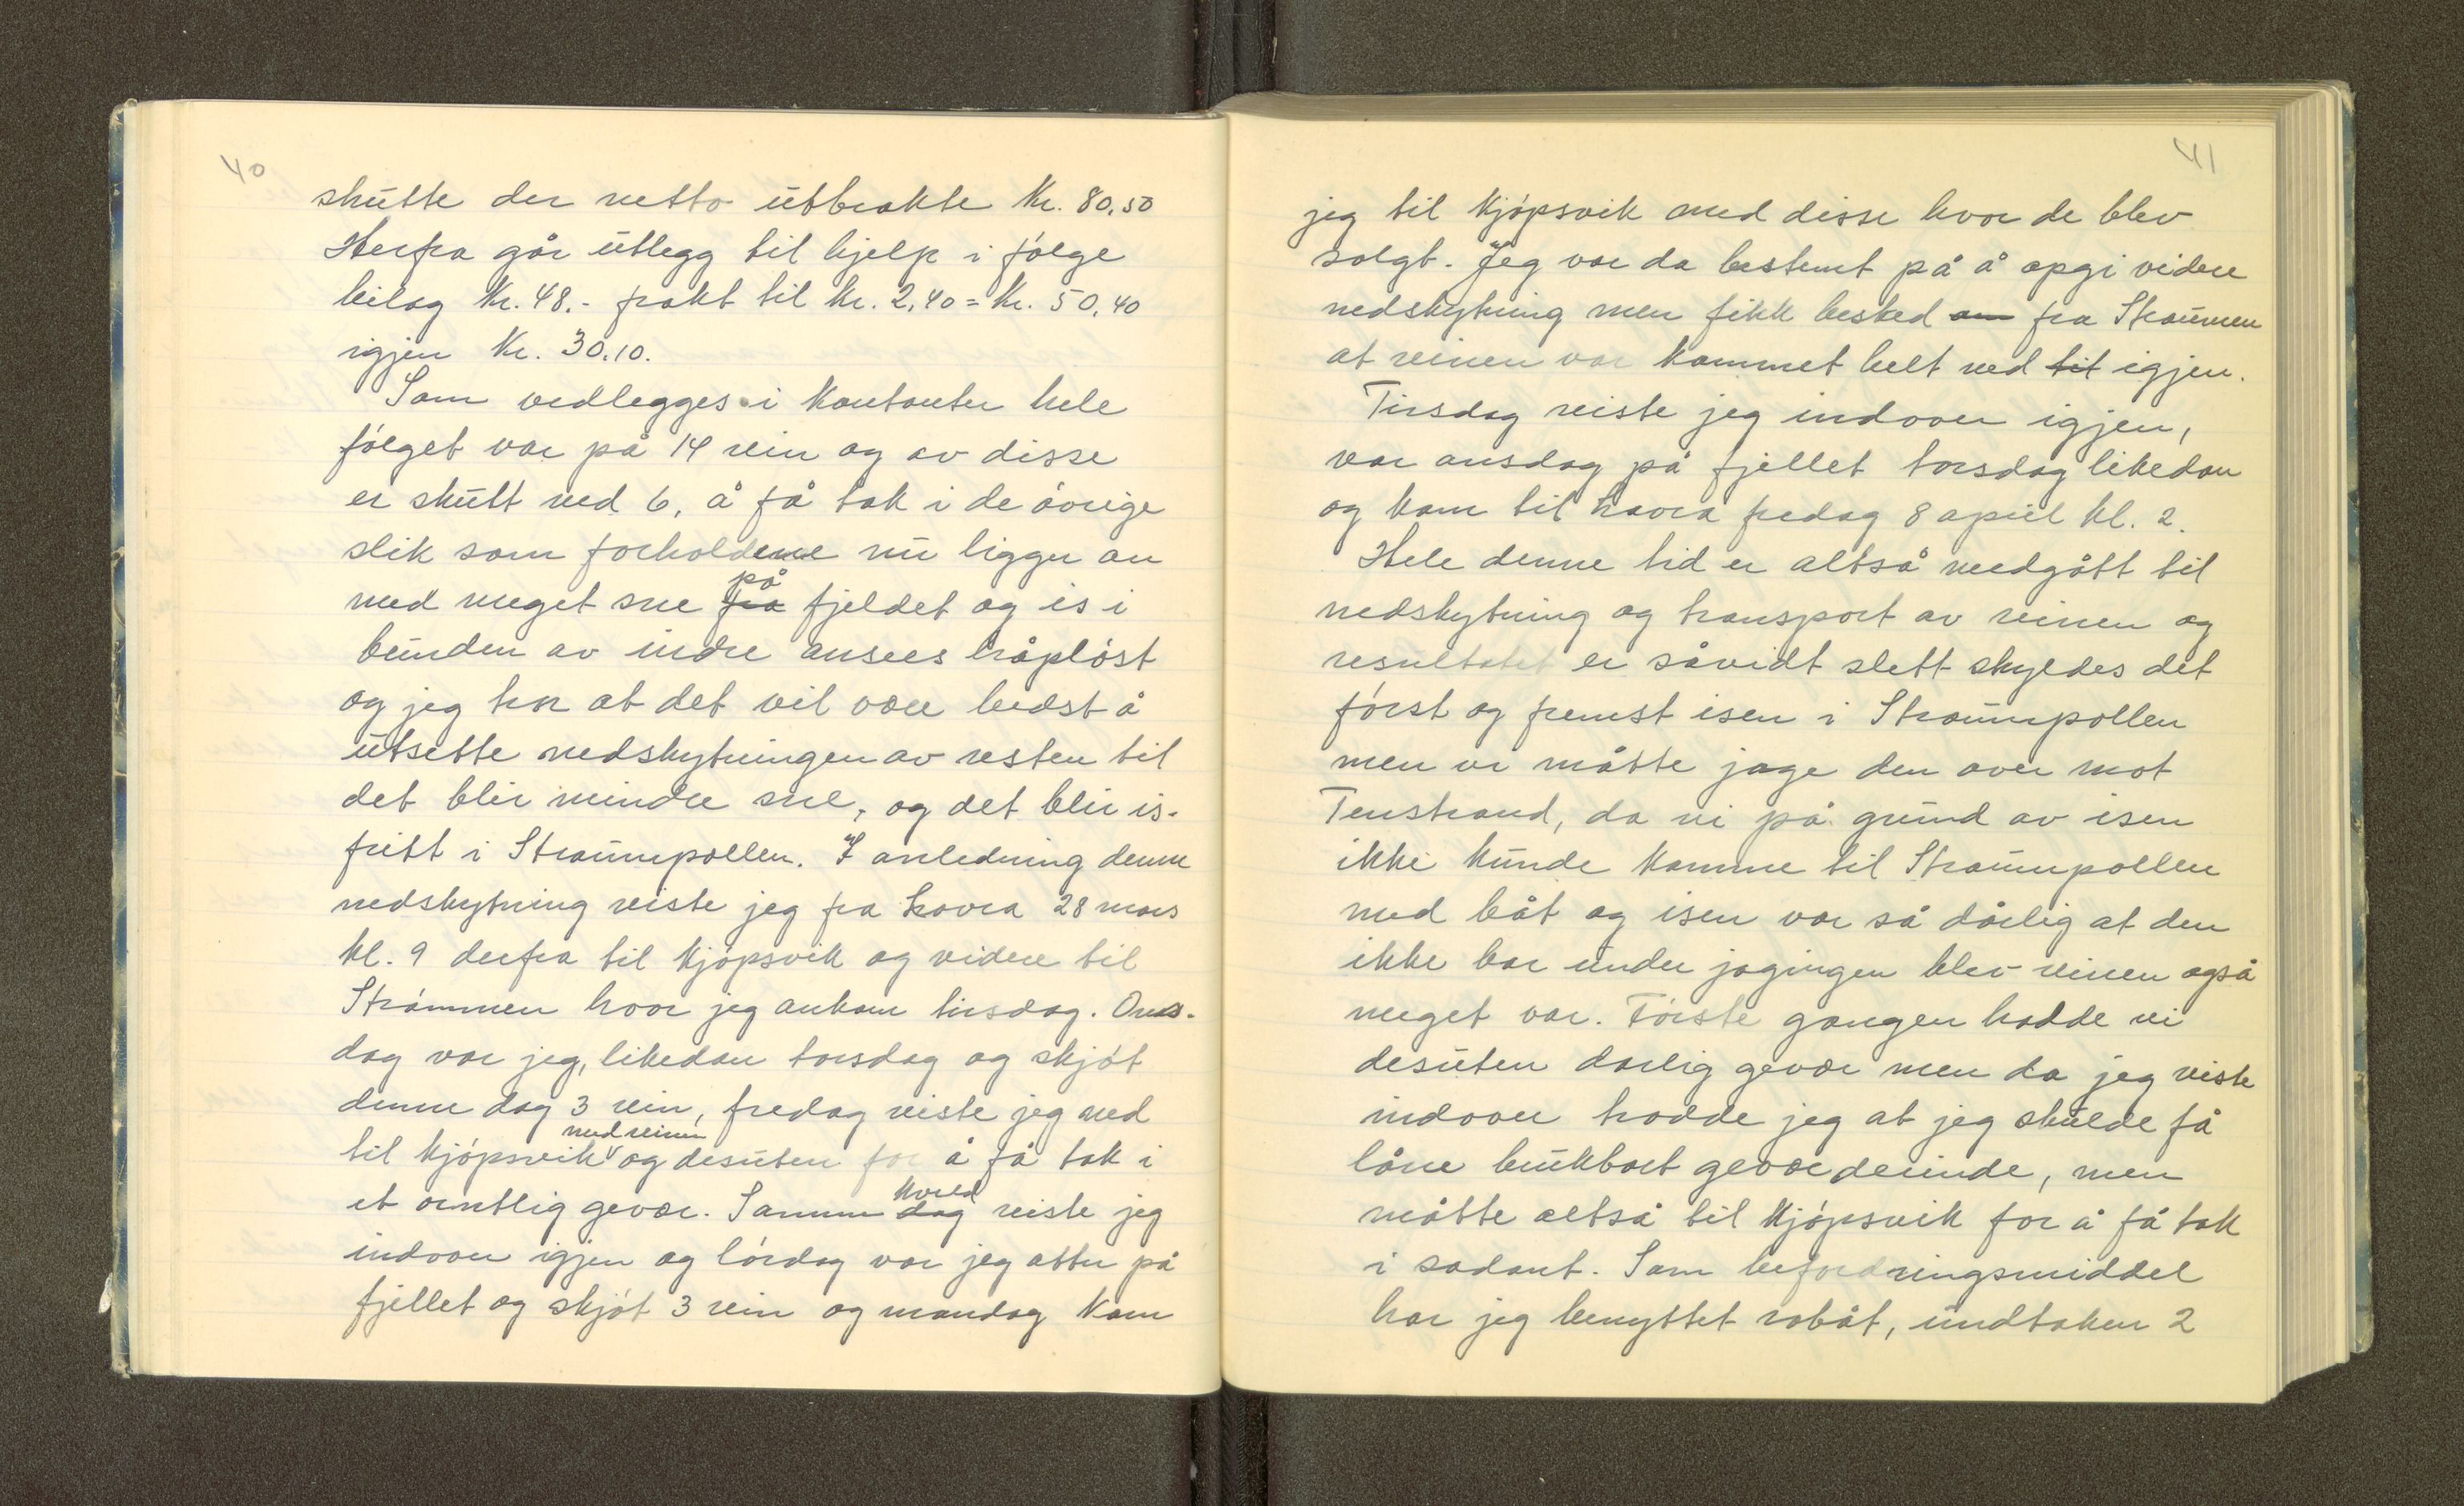 40
skutte der netto utbrakte Kr. 80,50
Herfra går utlegg til hjelp i følge
bilag Kr. 48.- frakt til kr. 2,40 = Kr. 50,40
igjen Kr. 30.10.
Som vedlegges i kontanter hele
følget var på 14 rein og av disse
er skutt ned 6, å få tak i de øvrige
slik som forholdene nu ligger an
med meget sne fra på fjeldet og is i
bunden av indre ansees håpløst
og jeg tror at det vil være bedst å
utsette nedskytningen av resten til
det blir mindre sne, og det blir is-
fritt i Straumpollen. I anledning denne
nedskytning reiste jeg fra Korsa 28 mars
kl. 9 derfra til Kjøpsvik og videre til
Strømmen hvor jeg ankom tirsdag. Ons-
dag var jeg, likedan torsdag og skjøt
denne dag 3 rein, fredag reiste jeg ned
til Kjøpsvik med reinen og desuten for å få tak i
et orntlig gevær. Samme dag kveld reiste jeg
indover igjen og lørdag var jeg atter på
fjellet og skjøt 3 rein og mandag kom
41
jeg til Kjøpsvik med disse hvor de blev
solgt. Jeg var da bestemt på å opgi videre
nedskytning men fikk besked om fra Straumen
at reinen var kommet helt ned tit igjen.
Tirsdag reiste jeg indover igjen,
var onsdag på fjellet torsdag likedan
og kom til fredag 8 april kl. 2.
Hele denne tid er altså medgått til
nedskytning og transport av reinen og
resultatet er såvidt slett skyldes det
først og fremst isen i Straumpollen
men vi måtte jage den over mot
Tenstrand, da vi på grund av isen
ikke kunde komme til Straumpollen
med båt og isen var så dårlig at den
ikke bar under jagingen blev reinen også
meget var. Første gangen hadde vi
desuten darlig gevær men da jeg reiste
indover trodde jeg at jeg skulde få
låne brukbart gevær derinde, men
måtte altså til Kjøpsvik for å få tak
i sadant. Som befordringsmiddel
har jeg benyttet robåt, undtaken 2